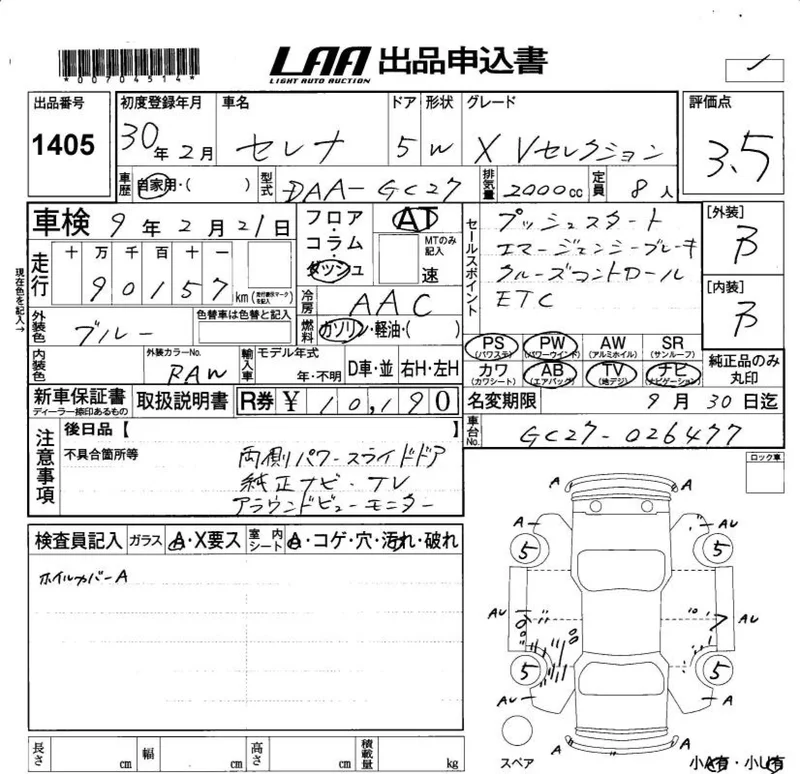 *00704514*
LAA 出品申込書
LIGHT AUTO AUCTION
出品番号 初度登録年月 車名 ドア 形状 グレード 評価点
1405 30年2月 セレナ 5 W X Vセレクション 3.5
車歴 自家用・( ) 型式 DAA-GC27 排気量 2000cc 定員 8人
車検 9年2月21日
フロア・コラム・ダッシュ AT MTのみ記入 速
セールスポイント プッシュスタート
エマージェンシーブレーキ
クルーズコントロール
ETC
[外装] B
[内装] B
走行 十 万 千 百 十 一
90157 km (走行積算マークを記入)
冷房 AAC
現在色を記入→
外装色 ブルー 色替車は色替と記入
燃料 ガソリン・軽油・( )
PS (パワステ) PW (パワーウインド) AW (アルミホイル) SR (サンルーフ)
カワ (カワシート) AB (エアバック) TV (地デジ) ナビ (ナビゲーション)
純正品のみ丸印
内装色 外装カラーNo. RAW 輸入車 モデル年式 年・不明 D車・並 右H・左H
新車保証書 ディーラー捺印あるもの 取扱説明書 R券 ¥10,190
名変期限 9月30日迄
車台No. GC27-026477
注意事項 後日品【 】
不具合箇所等
両側パワースライドドア
純正ナビ・TV
アラウンドビューモニター
ロック車
検査員記入 ガラス A・X要ス 室内シート A・コゲ・穴・汚れ・破れ
ホイルカバーA
A
A AU
5 5
AU AU
5 5
AU A
A
スペア
小A有・小U有
長さ cm 幅 cm 高さ cm 積載量 kg